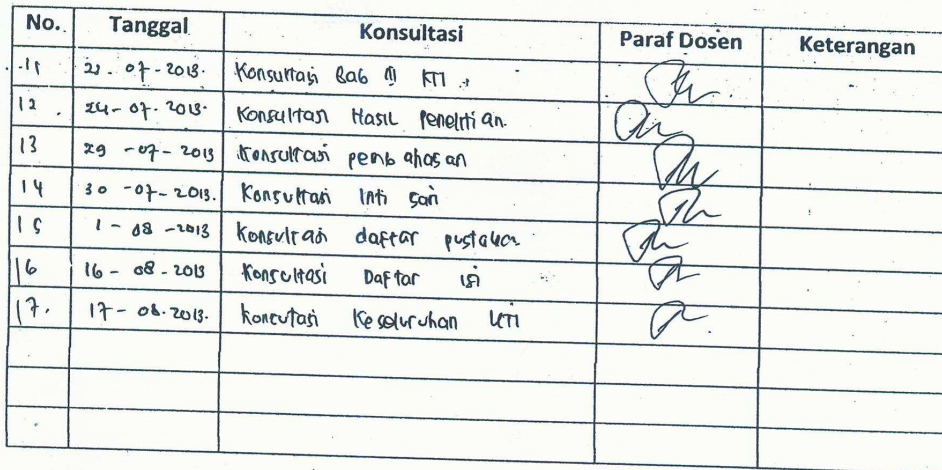 No. Tanggal Konsultasi Paraf Dosen Keterangan
11 22-07-2013. Konsultasi Bab KTI
12. 24-07-2013. Konsultasi Hasil penelitian.
13 29-07-2013 Konsultasi pembahasan
14 30-07-2013. Konsultasi Inti sari
15 1-08-2013 Konsultasi daftar pustaka
16 16-08-2013 Konsultasi Daftar isi
17. 17-08-2013. Konsutasi Keseluruhan KTI